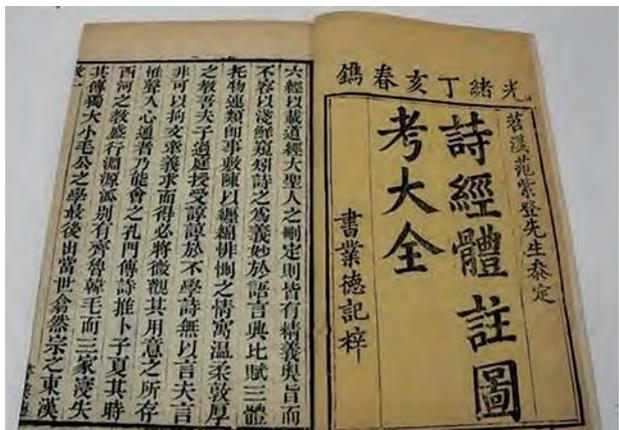 光緒丁亥春鐫
苕溪范紫登先生叅定
詩經體註圖
考大全
書業德記梓
六經以載道經大聖人之刪定則皆有精義奧旨而
不容以淺鮮窺矧詩之為義妙於語言興比賦三體
托物連類即事敷陳以纏綿悱惻之情寓溫柔敦厚
之教昔夫子過庭授受諄諄於不學詩無以言夫言
非可以拘文牽義求而得必將微觀其用意之所存
惟聲入心通者乃能會之孔門傳詩推卜子夏其時
西河之教盛行淵源派別有齊魯韓毛而三家寖失
其傳獨大小毛公之學最後出當世翕然宗之東漢